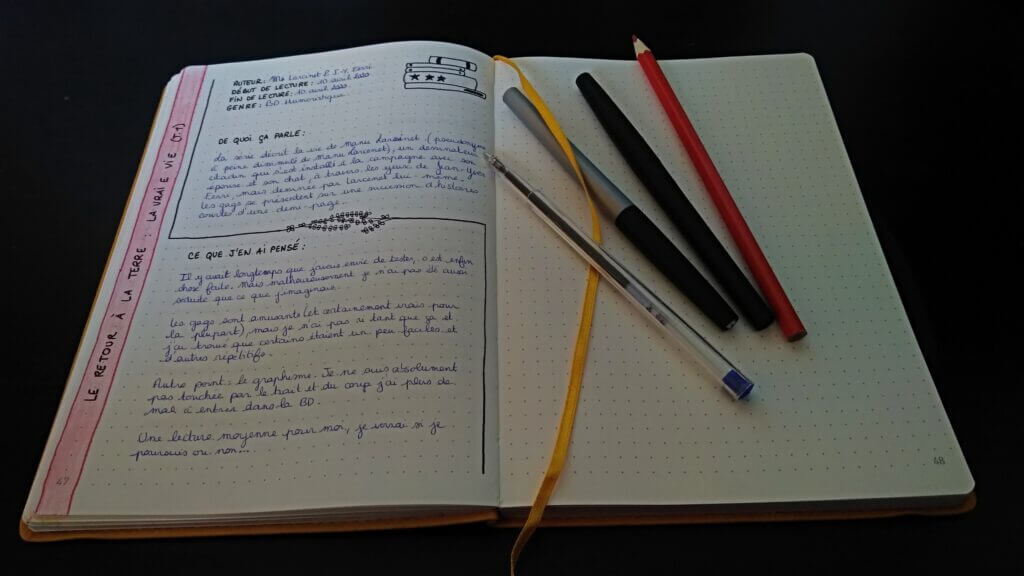 LE RETOUR À LA TERRE : LA VRAIE VIE (T.1)
AUTEUR: Mr Larcenet & J-Y. Ferri
DÉBUT DE LECTURE: 10 avril 2020
FIN DE LECTURE: 10 avril 2020
GENRE: BD Humoristique
DE QUOI ÇA PARLE:
La série décrit la vie de Manu Larssinet (pseudonyme
à peine dissimulé de Manu Larcenet), un dessinateur
citadin qui s'est installé à la campagne avec son
épouse et son chat, à travers les yeux de Jean-Yves
Ferri, mais dessinée par Larcenet lui-même.
Les gags se présentent sur une succession d'histoires
courtes d'une demi-page.
CE QUE J'EN AI PENSÉ:
Il y avait longtemps que j'avais envie de tester, c'est enfin
chose faite. Mais malheureusement je n'ai pas été aussi
séduite que ce que j'imaginais.
Les gags sont amusants (et certainement vrais pour
la plupart), mais je n'ai pas ri tant que ça et
j'ai trouvé que certains étaient un peu faciles et
d'autres répétitifs.
Autre point: le graphisme. Je ne suis absolument
pas touchée par le trait et du coup j'ai plus de
mal à entrer dans la BD.
Une lecture moyenne pour moi, je verrai si je
poursuis ou non...
47
48